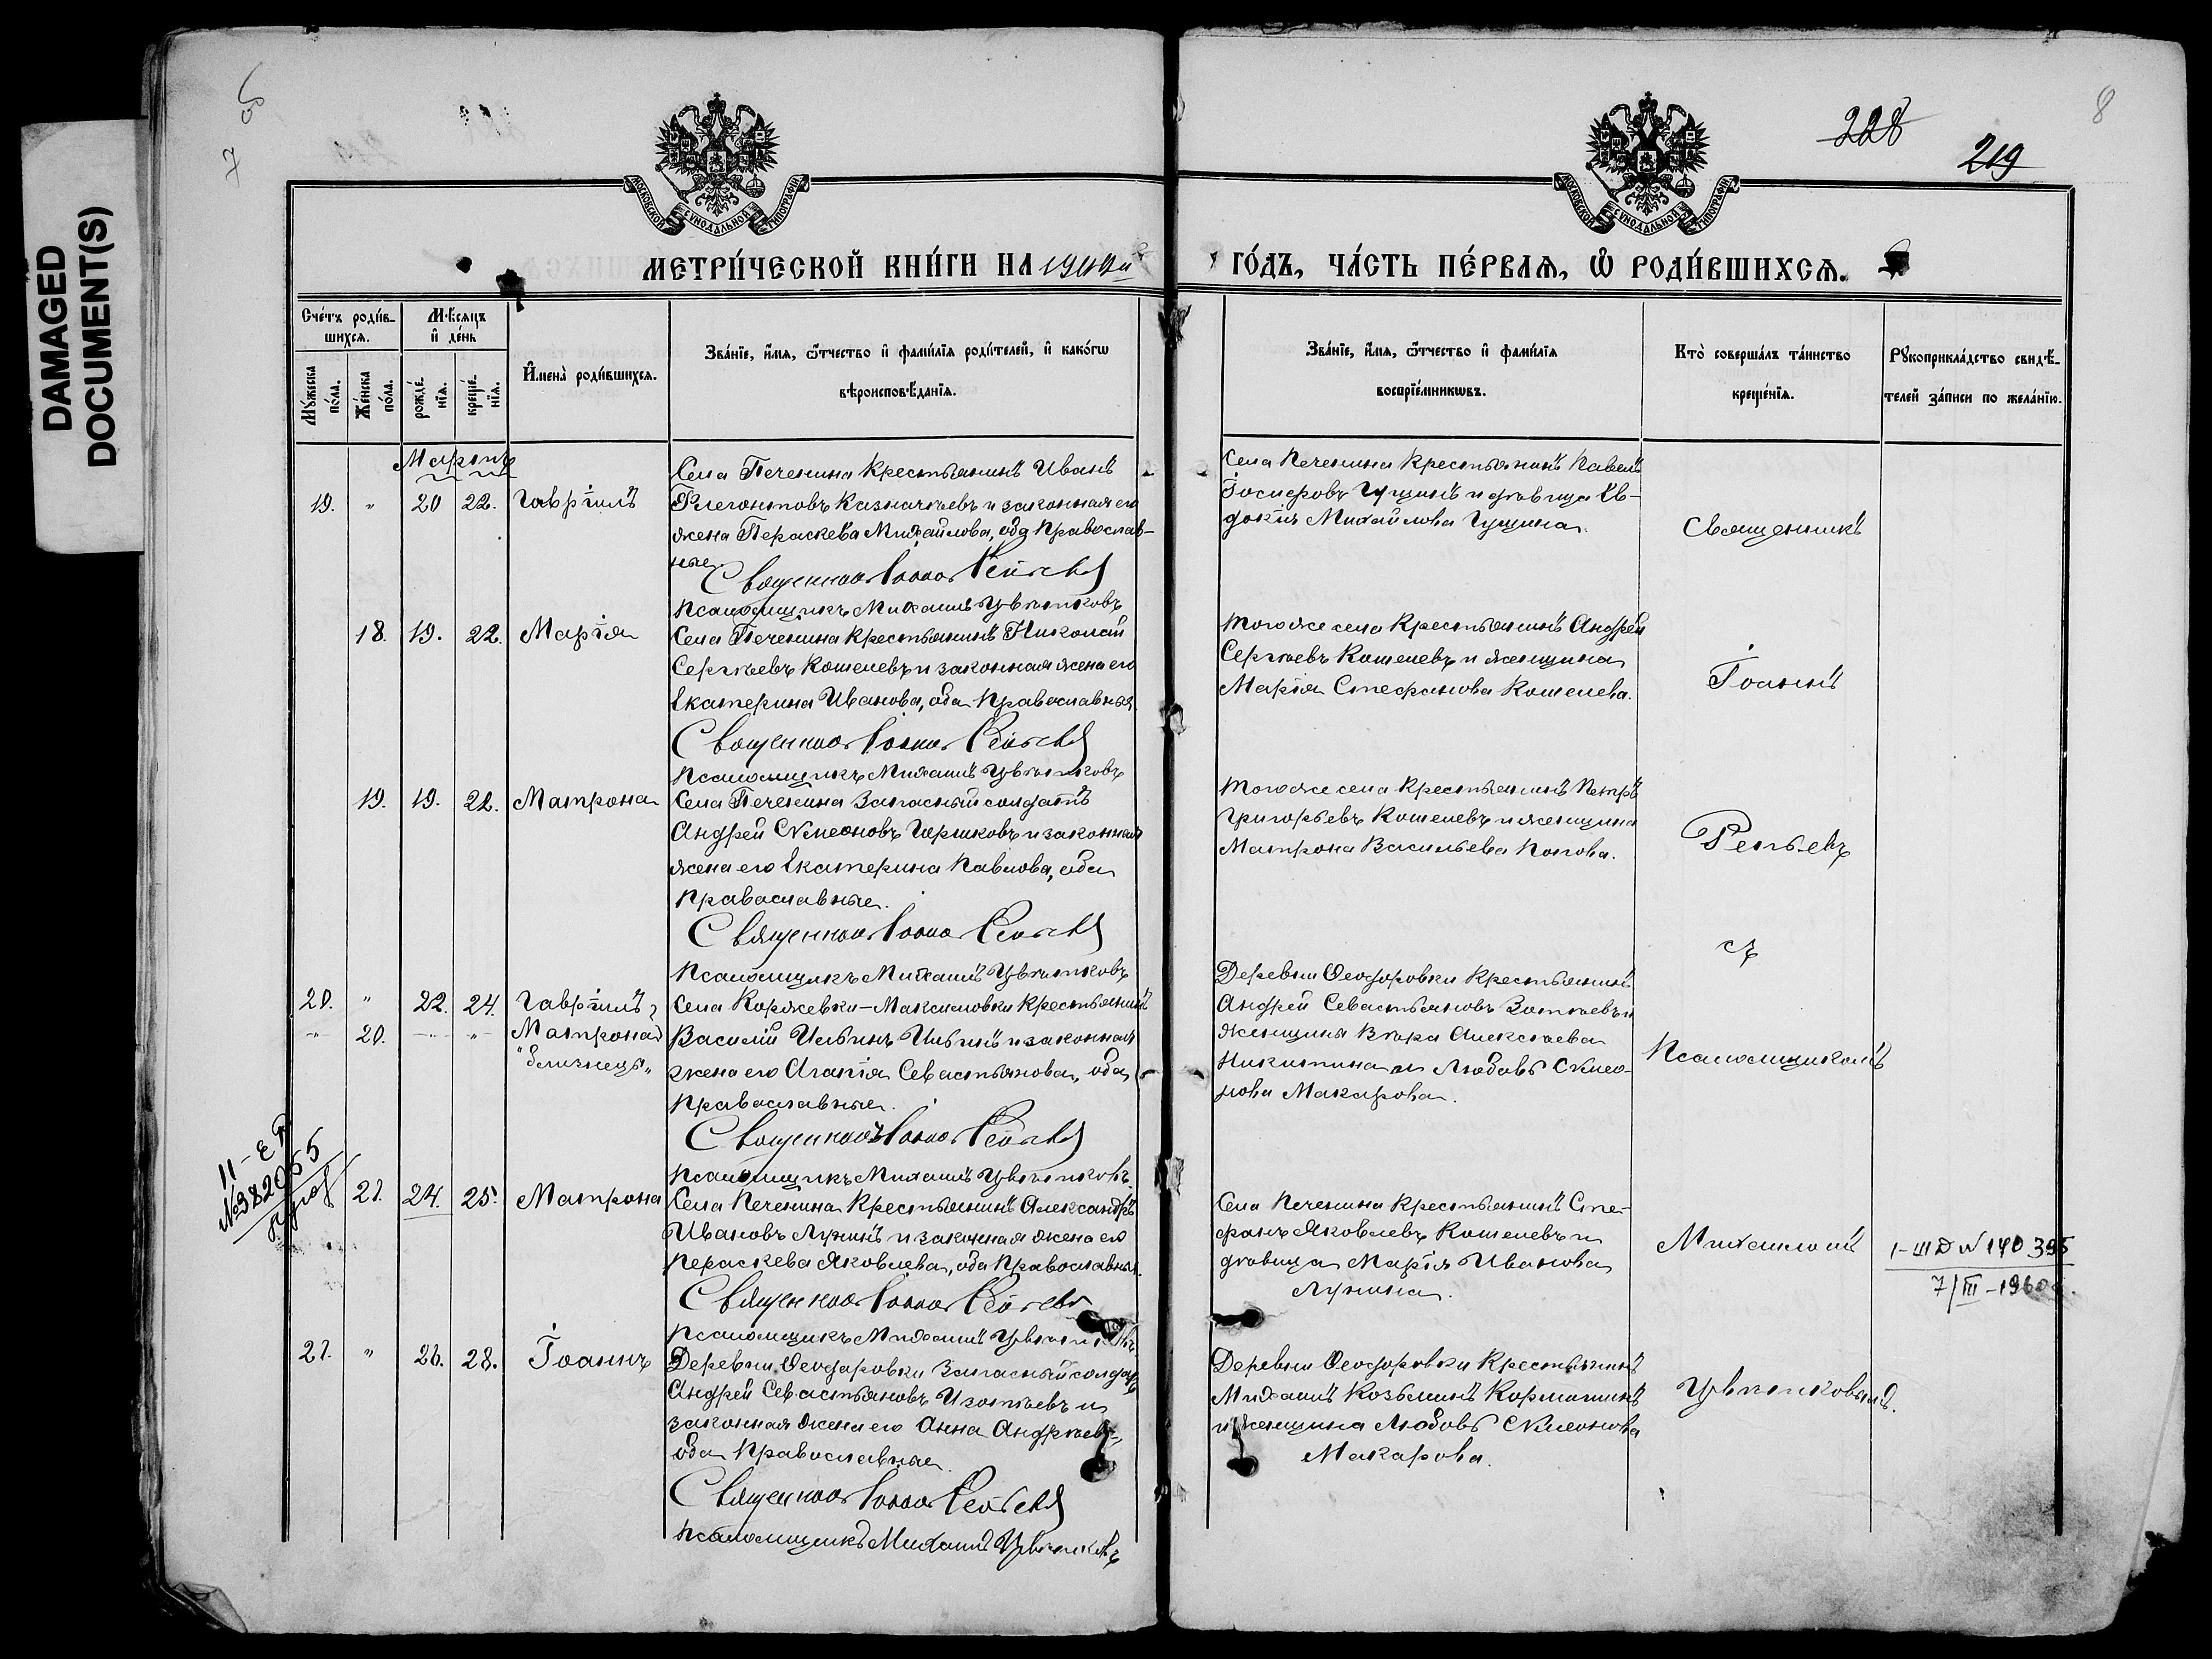 DAMAGED
DOCUMENT(S)
7
8
228
219
МОСКОВСКОЙ СУНОДАЛЬНОЙ ТИПОГРАФІИ
МОСКОВСКОЙ СУНОДАЛЬНОЙ ТИПОГРАФІИ
МЕТРИ́ЧЕСКОЙ КНИ́ГИ НА
ГО́ДЪ, ЧА́СТЬ ПЕ́РВАѦ, Ѡ РОДИ́ВШИХСѦ.
Сче́тъ роди́в-
шихсѧ.
Му́жеска по́ла.
Же́нска по́ла.
Мѣ́сѧцъ и де́нь
рожде́нїѧ.
креще́нїѧ.
Имена̀ роди́вшихсѧ.
Зва́нїе, и́мѧ, ѻ́тчество и фами́лїѧ роди́телей, и како́гѡ
вѣроисповѣ́данїѧ.
Зва́нїе, и́мѧ, ѻ́тчество и фами́лїѧ
воспрїе́мникѡвъ.
Кто̀ соверша́лъ та́инство
креще́нїѧ.
Рꙋкоприкла́дство свидѣ́-
телей за́писи по жела́нїю.
Мартъ
19. " 20 22. Гавріилъ
Села Печенина Крестьянинъ Иванъ
Флегонтовъ Казначѣевъ и законная его
жена Параскева Михайлова, оба Православ-
ные
Священник Іоанн
Псаломщикъ Михаилъ Цвѣтковъ
Села Печенина Крестьянинъ Павелъ
Іосифовъ Гущинъ и дѣвица Ев-
докія Михайлова Гущина.
Священникъ
18. 19. 22. Марія
Села Печенина Крестьянинъ Николай
Сергѣевъ Кошелевъ и законная жена его
Екатерина Иванова, оба Православные
Священник Іоанн
Псаломщикъ Михаилъ Цвѣтковъ
Того же села Крестьянинъ Андрей
Сергѣевъ Кошелевъ и женщина
Марія Стефанова Кошелева.
Іоаннъ
19. 19. 22. Матрона
Села Печенина Запасный солдатъ
Андрей Сѵмеоновъ Горшковъ и законная
жена его Екатерина Павлова, оба
Православные.
Священник Іоанн
Псаломщикъ Михаилъ Цвѣтковъ
Того же села Крестьянинъ Петръ
Григорьевъ Кошелевъ и женщина
Матрона Васильева Попова.
съ
20. " 22. 24. Гавріилъ
" 20. " " Матрона
"близнецы"
Села Коржевки-Максимовки Крестьянинъ
Василій Ильинъ Ильинъ и законная
жена его Агапія Севастьянова, оба
Православные.
Священник Іоанн
Псаломщикъ Михаилъ Цвѣтковъ.
Деревни Ѳеодоровки Крестьянинъ
Андрей Севастьяновъ Зотѣевъ и
женщины Вѣра Алексѣева
Никитина и Любовь Сѵмео-
нова Макарова.
Псаломщикомъ
21. 24. 25. Матрона
Села Печенина Крестьянинъ Александръ
Ивановъ Лунинъ и законная жена его
Параскева Яковлева, оба Православные.
Священник Іоанн
Псаломщикъ Михаилъ
Села Печенина Крестьянинъ Сте-
фанъ Яковлевъ Кошелевъ и
дѣвица Марія Иванова
Лунина.
Михаиломъ
I-ШД №140395
7/III-1960
21. " 26. 28. Іоаннъ
Деревни Ѳеодоровки Запасный солдатъ
Андрей Севастьяновъ Изотѣевъ и
законная жена его Анна Андрѣева,
оба Православные
Священник Іоанн
Псаломщикъ Михаилъ Цвѣтковъ
Деревни Ѳеодоровки Крестьянинъ
Михаилъ Козьминъ
и женщина Любовь Сѵмеонова
Макарова.
Цвѣтковымъ.